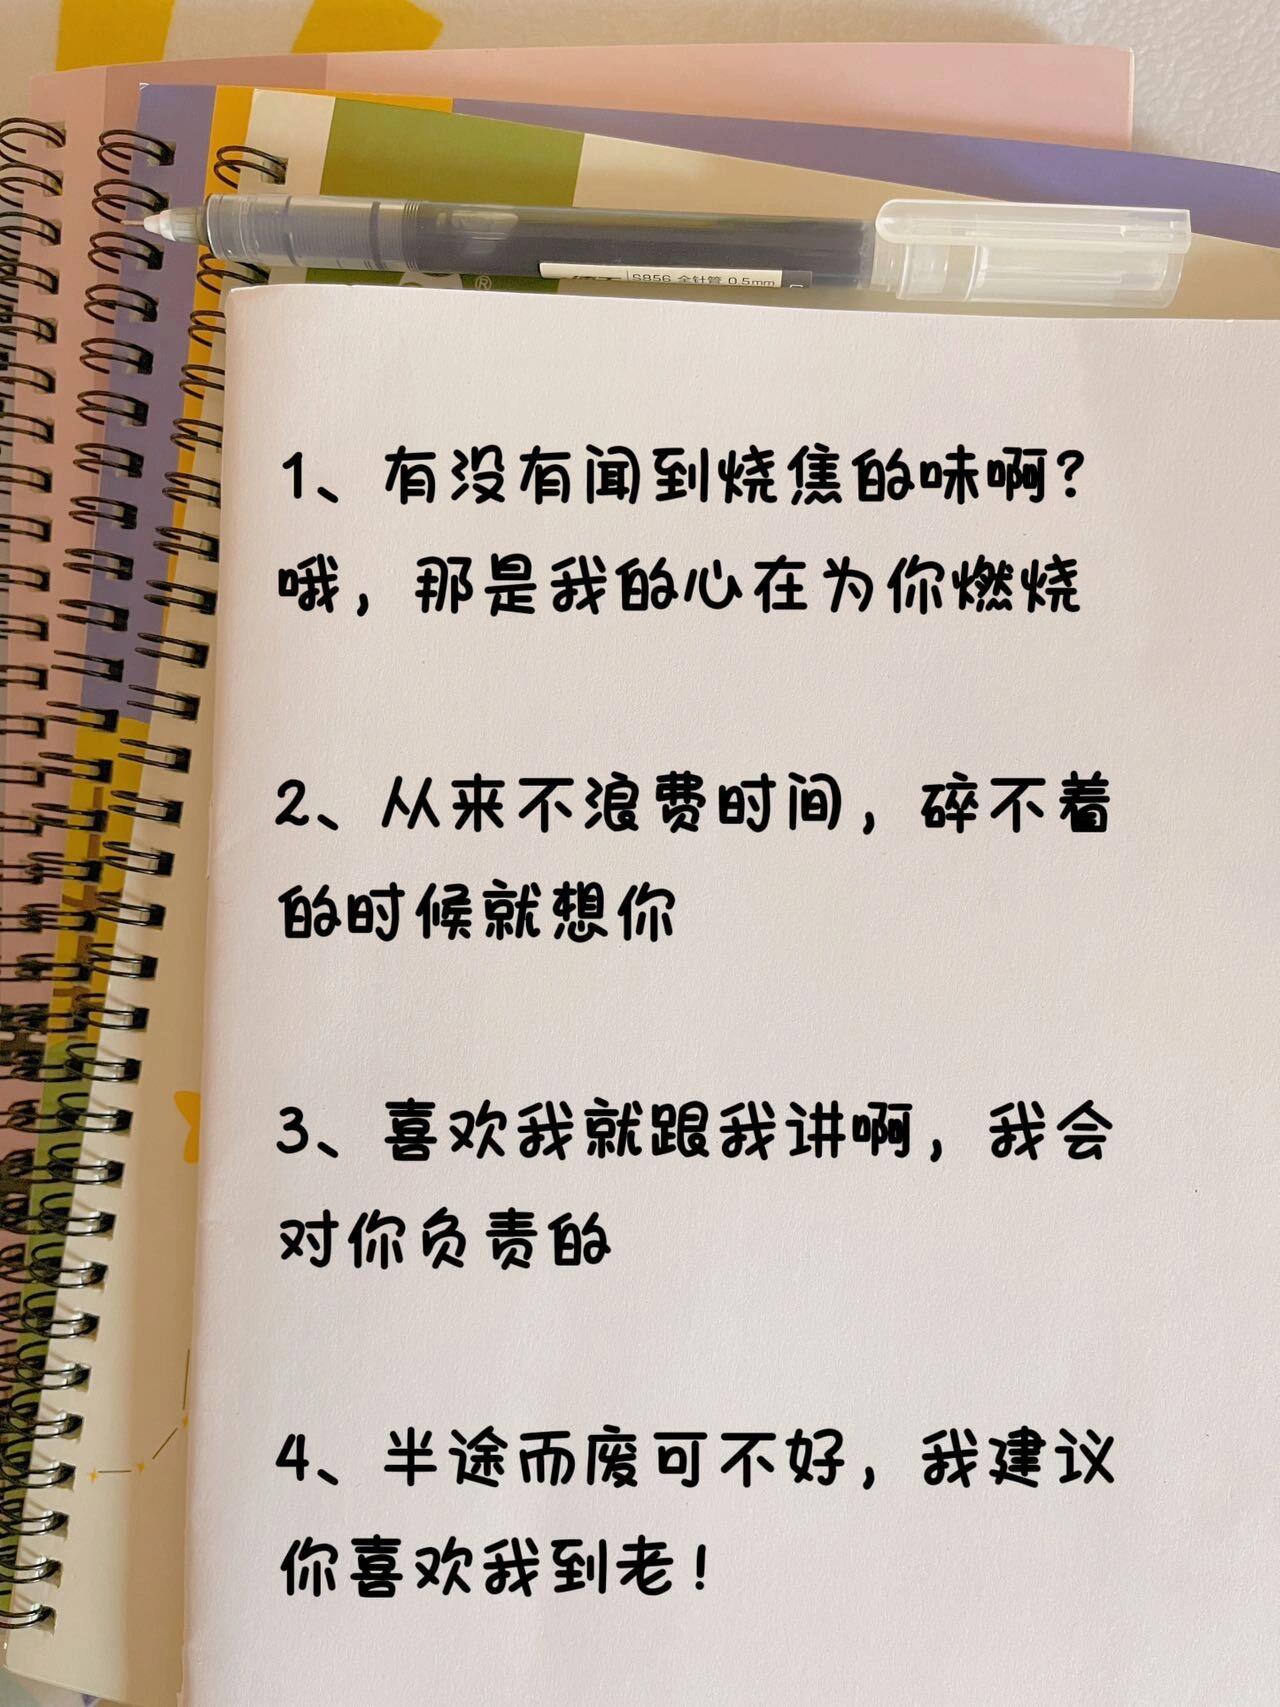 S856 全针管 0.5mm
®
1、有没有闻到烧焦的味啊？
哦，那是我的心在为你燃烧
2、从来不浪费时间，碎不着
的时候就想你
3、喜欢我就跟我讲啊，我会
对你负责的
4、半途而废可不好，我建议
你喜欢我到老！